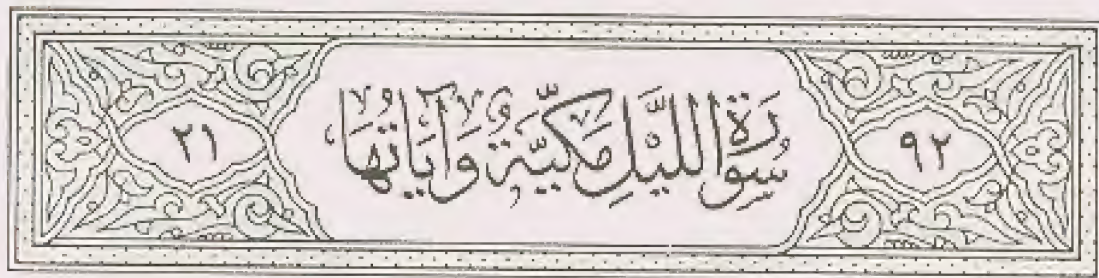 ٩٢ سُورَةُ اللَّيْلِ مَكِّيَّةٌ وَآيَاتُهَا ٢١